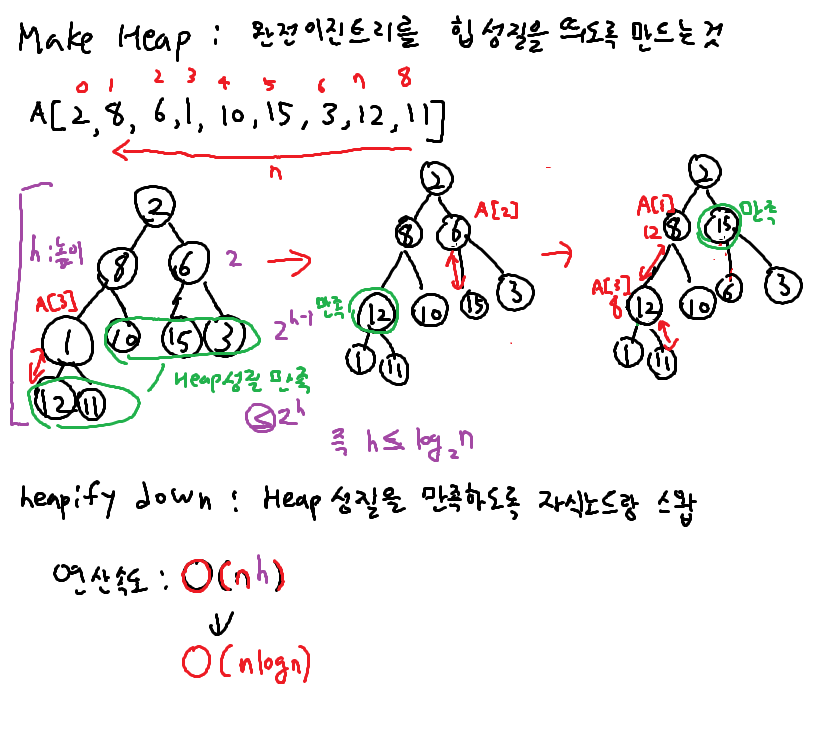 Make Heap : 완전이진트리를 힙성질을 띄도록 만드는것
0 1 2 3 4 5 6 7 8
A[2,8,6,1,10,15,3,12,11]
n
h:높이
2
8 6 2
A[3]
1 10 15 3 2^h-1
12 11
Heap성질 만족
≤2^h
2
8 6 A[2]
만족 12 10 15 3
1 11
2
A[1] 8 15 만족
12
A[3] 12 10 6 3
8
1 11
즉 h≤log₂n
heapify down : Heap성질을 만족하도록 자식노드랑 스왑
연산속도 : O(nh)
O(nlogn)